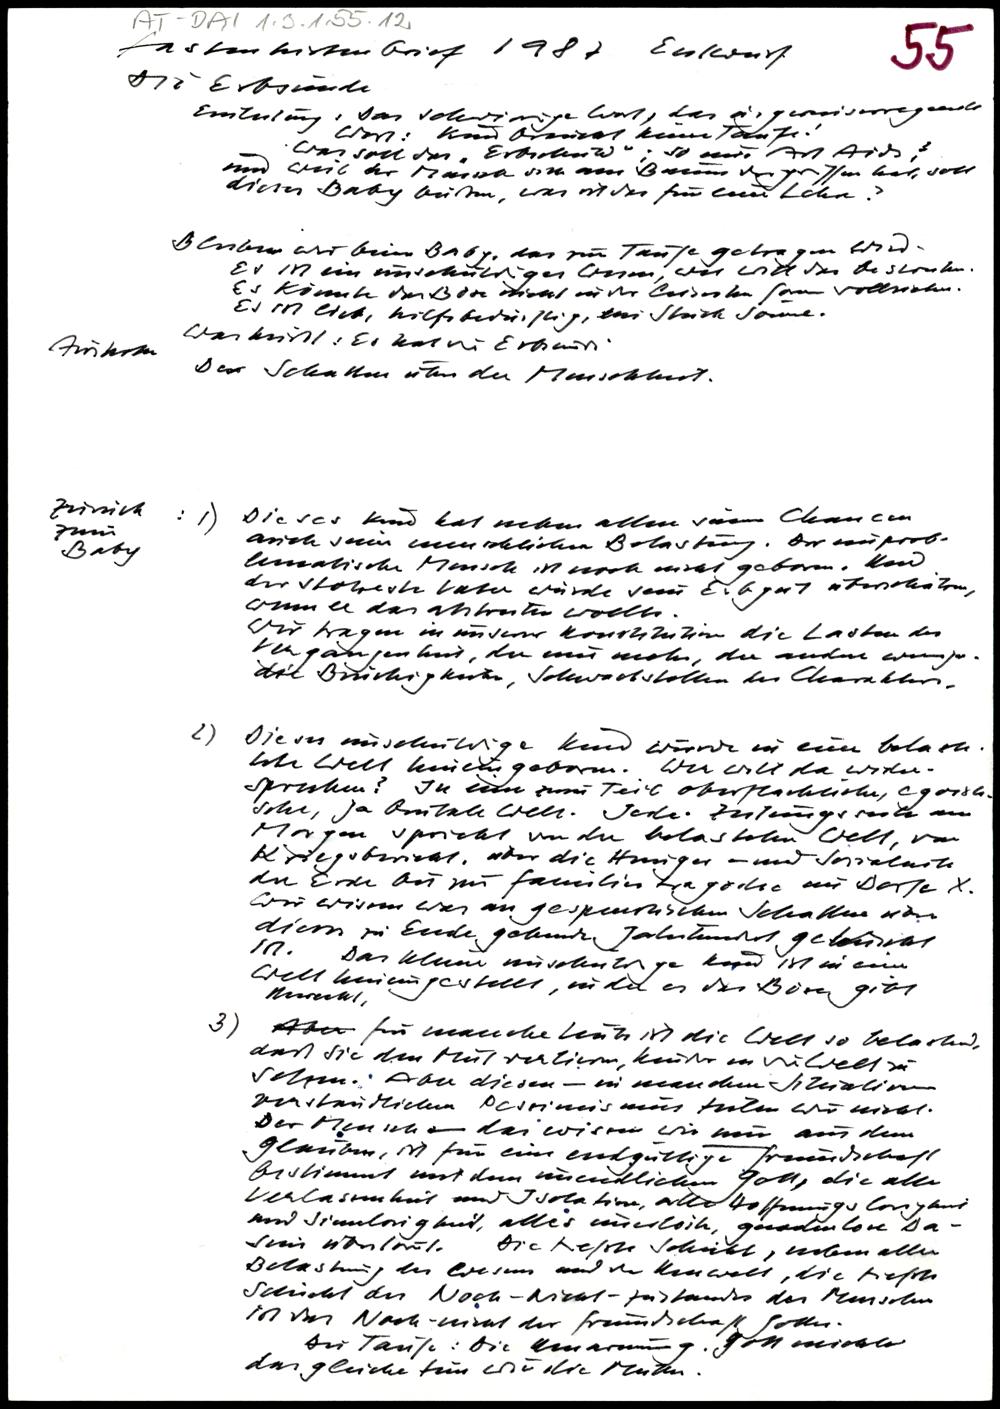 AT-DAI 1.3.1.55.12
55
Fastenhirtenbrief 1987 Entwurf
Die Erbsünde
Einleitung: Das schwierige Wort, das ärgerniserregende
Wort: Kind braucht keine Taufe!
Was soll das "Erbschuld"; so eine Art Aids?
und weil der Mensch sich am Baum vergriffen hat, soll
dieses Baby büßen, was ist das für eine Lehre?
Bleiben wir beim Baby, das zur Taufe getragen wird.
Es ist ein unschuldiges Wesen, wer will das bestreiten.
Es könnte das Böse nicht in der leisesten Form vollziehen.
Es ist lieb, hilfsbedürftig, ein Stück Sonne.
Was heißt: Es hat die Erbsünde
Der Schatten über der Menschheit.
Zurück
zum
Baby
: 1) Dieses Kind hat neben allen seinen Chancen
auch seine menschlichen Belastung. Der unprob-
lematische Mensch ist noch nicht geboren. Und
der stolzeste Vater würde sein Erbgut überschätzen,
wenn er das abstreiten wollte.
Wir tragen in unserer Konstitution die Lasten der
Vergangenheit, der eine mehr, der andere weniger.
die Brüchigkeiten, Schwachstellen des Charakters.
2) Dieses unschuldige Kind wurde in eine belas-
tete Welt hineingeboren. Wer will da wider-
sprechen? In eine zum Teil oberflächliche, egoisti-
sche, ja brutale Welt. Jede Zeitungsseite am
Morgen spricht von der belasteten Welt, vom
Kriegsbericht, über die Hunger- und Sozialnöte
der Erde bis zur Familientragödie im Dorfe X.
Wir wissen was an gespenstischen Schatten über
dieses zu Ende gehende Jahrhundert gehuscht
ist. Das kleine unschuldige Kind ist in eine
Welt hineingestellt, in der es das Böse gibt
3) Aber für manche Leute ist die Welt so belastend,
daß sie den Mut verlieren, Kinder in die Welt zu
setzen. Aber diesen - in manchen Situationen
verständlichen Pessimismus teilen wir nicht.
Der Mensch - das wissen wir nur aus dem
Glauben, ist für eine endgültige Freundschaft
bestimmt mit dem unendlichen Gott, die alle
Verlassenheit und Isolation, alle Hoffnungslosigkeit
und Sinnlosigkeit, alles unerlöste, gnadenlose Da-
sein überlebt. Die tiefste Schicht, neben aller
Belastung des Wesens und der Umwelt, die tiefste
Schicht des Noch-Nicht-Zustandes des Menschen
ist das Noch-nicht der Freundschaft Gottes.
Die Taufe: Die Umarmung. Gott möchte
das gleiche tun wie die Mutter.